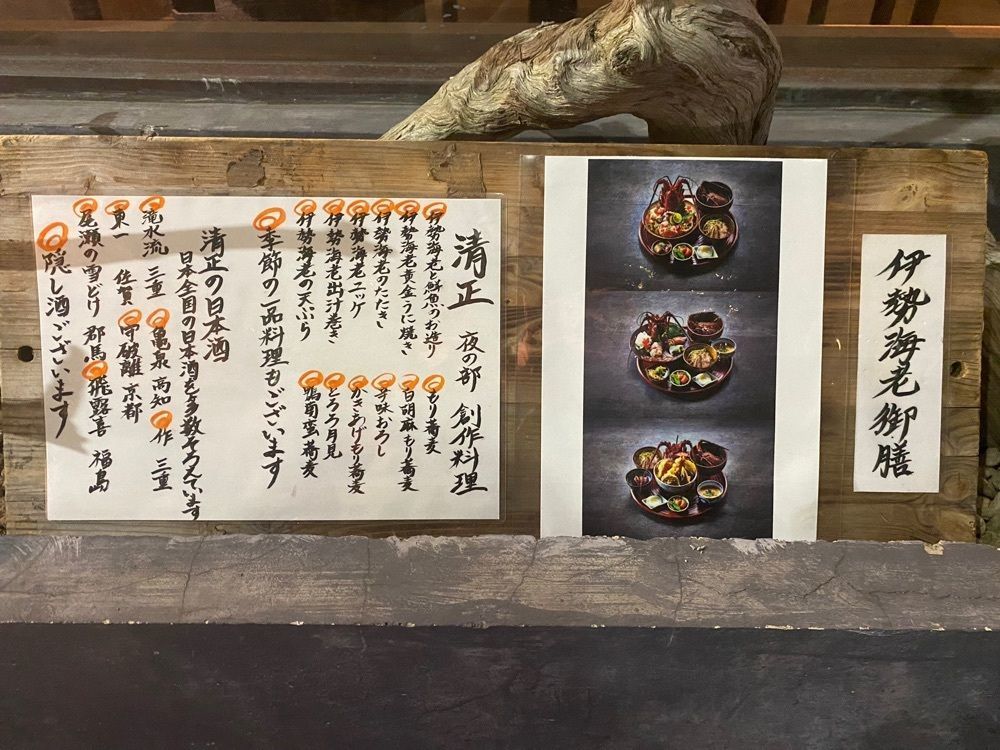 伊勢海老御膳
清正 夜の部 創作料理
伊勢海老と鮮魚のお造り
伊勢海老黄金うに焼き
伊勢海老のたたき
伊勢海老エッグ
伊勢海老出汁巻き
伊勢海老の天ぷら
もり蕎麦
白胡麻もり蕎麦
辛味おろし
かきあげもり蕎麦
とろろ月見
鴨南蛮蕎麦
季節の一品料理もございます
清正の日本酒
日本全国の日本酒を多数そろえています
滝水流 三重 亀泉 高知 作 三重
東一 佐賀 守破離 京都
尾瀬の雪どけ 群馬 飛露喜 福島
隠し酒ございます